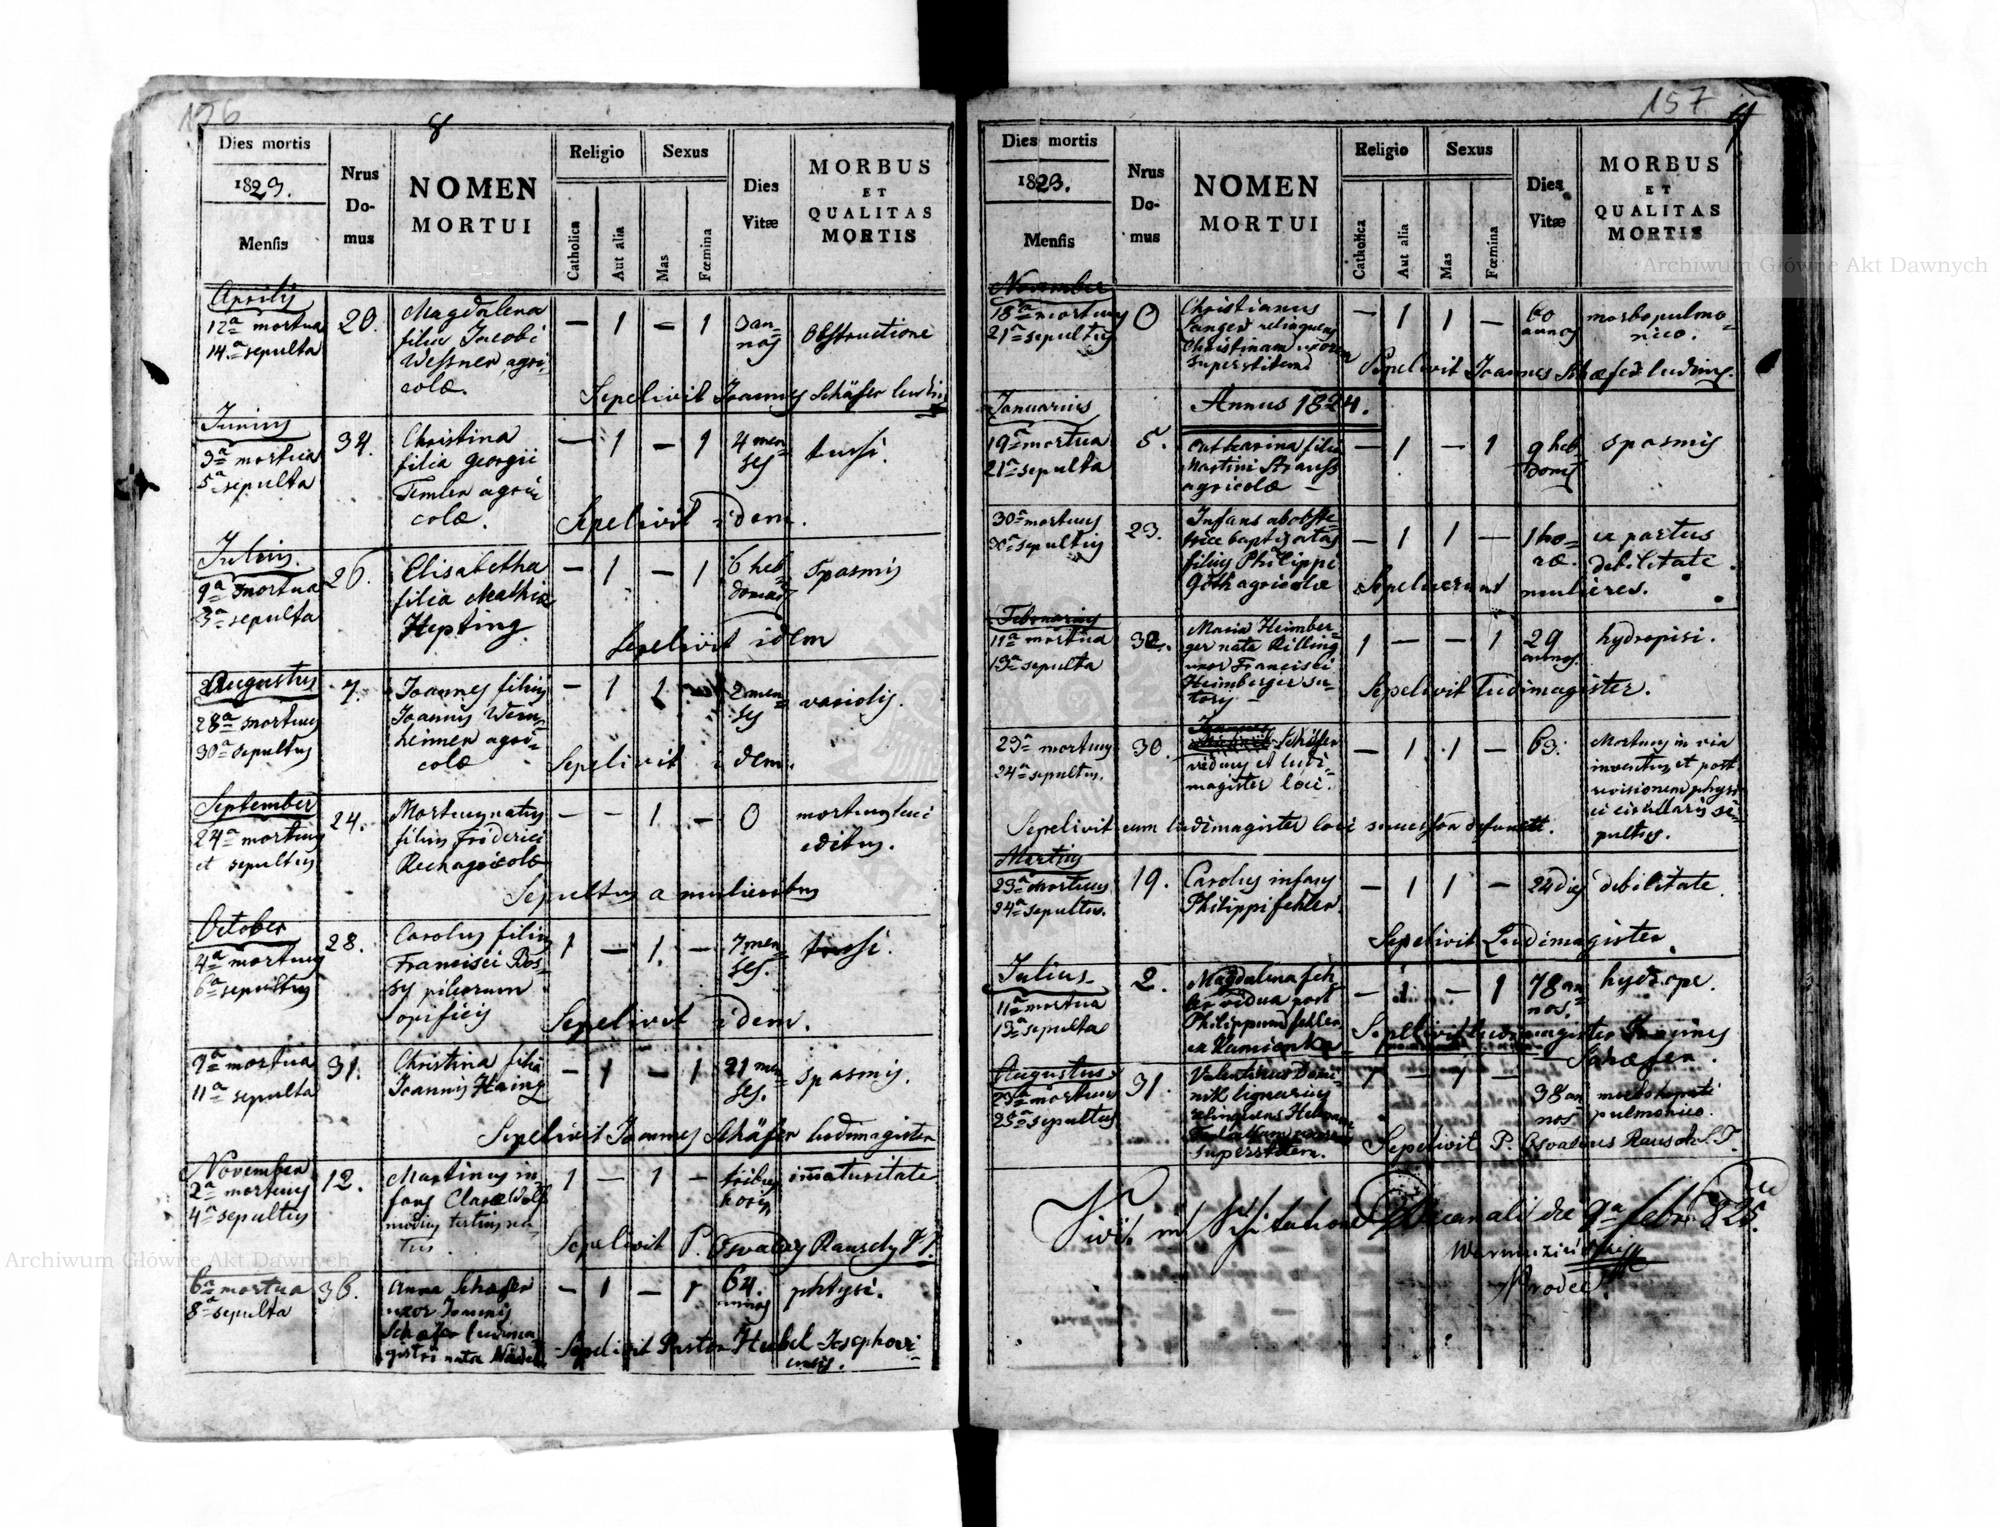 156
8
Dies mortis
1823.
Mensis
Nrus
Do-
mus
NOMEN
MORTUI
Religio
Catholica
Aut alia
Sexus
Mas
Fœmina
Dies
Vitæ
MORBUS
ET
QUALITAS
MORTIS
Aprilis
12a mortua
14a sepulta
20.
Magdalena
filia Jacobi
Wessner agri-
colæ.
— 1 — 1
3 an-
nos
Obstructione
Sepelivit Joannes Schäfer ludim
Junius
3a mortua
5a sepulta
34.
Christina
filia Georgii
Temler agri-
colæ.
— 1 — 1
4 men-
ses
tussi.
Sepelivit idem.
Julius.
1a mortua
3a sepulta
26.
Elisabetha
filia Mathiæ
Hepting
— 1 — 1
6 heb-
domad
Spasmis
Sepelivit idem
Augustus
28a mortuus
30a sepultus
7.
Joannes filius
Joannis Wein-
heimer agri-
colæ
— 1 1 —
2 men-
ses
variolis.
Sepelivit idem.
September
24a mortuus
et sepultus
24.
Mortuus natus
filius Friderici
Rech agricolæ
— — 1 —
0
mortuus luci
editus.
Sepultus a mulieribus
October
4a mortuus
6a sepultus
28.
Carolus filius
Francisci Ros-
sy pileorum
opificis
1 — 1. —
7 men-
ses.
tussi.
Sepelivit idem.
9a mortua
11a sepulta
31.
Christina filia
Joannis Haing
— 1 — 1
21 men-
ses.
spasmis.
Sepelivit Joannes Schäfer ludimagister
November
2a mortuus
4a sepultus
12.
Martinus in-
fans Claræ Wolf
modius tertius na-
tus.
1 — 1 —
tribus
horis
imaturitate
Sepelivit P. Osvaldus Rausch S.T.
6a mortua
8a sepulta
36.
Anna Schäfer
uxor Joannis
Schäfer ludima-
gistri nata
— 1 — 1
64.
annos
phtysi.
Sepelivit Pastor Hubel Josephovi-
ensis.
157
Dies mortis
1823.
Mensis
Nrus
Do-
mus
NOMEN
MORTUI
Religio
Catholica
Aut alia
Sexus
Mas
Fœmina
Dies
Vitæ
MORBUS
ET
QUALITAS
MORTIS
November
18a mortuus
21a sepultus
0
Christianus
Langer relinquens
Christinam uxorem
superstitem
— 1 1 —
60
annos
morbo pulmo-
nico.
Sepelivit Joannes Schæfer ludimg.
Januarius
Annus 1824.
19a mortua
21a sepulta
5.
Catharina filia
Martini Strauss
agricolæ —
— 1 — 1
9 heb
domis
spasmis
30a mortuus
30a sepultus
23.
Infans ab obste-
trice baptizatus
filius Philippi
Göth agricolæ
— 1 1 —
1 ho-
ræ.
ex partus
debilitate.
Sepelierunt mulieres.
Februarius
11a mortua
13a sepulta
32.
Maria Heimber-
ger nata Killing
uxor Francisci
Heimberger su-
toris —
1 — — 1
29
annos.
hydropisi.
Sepelivit Ludimagister.
23a mortuus
24a sepultus.
30.
Joannes
Schäfer
viduus et ludi-
magister loci.
— 1 1 —
63.
Mortuus in via
inventus et post
revisionem physi-
ci circularis se-
pultus.
Sepelivit eum ludimagister loci successor defuncti.
Martius
23a mortuus
24a sepultus.
19.
Carolus infans
Philippi Fehler.
— 1 1 —
24 dies
debilitate.
Sepelivit Ludimagister.
Julius
11a mortua
13a sepulta
2.
Magdalena Feh-
ler vidua post
Philippum Fehler
ex Kamionka
— 1 — 1
78 an-
nos.
hydrope.
Sepelivit ludimagister Joannes
Schæfer.
Augustus
23a mortuus
25a sepultus
31.
Valentinus Domi-
nik lignarius
relinquens
uxorem
superstitem.
1 — 1 —
38 an
nos
morbo hepati
pulmonico.
Sepelivit P. Osvaldus Rausch S.T.
Vidi in Visitatione Decanali die 9a febr. 825.
Archiwum Główne Akt Dawnych
Archiwum Główne Akt Dawnych